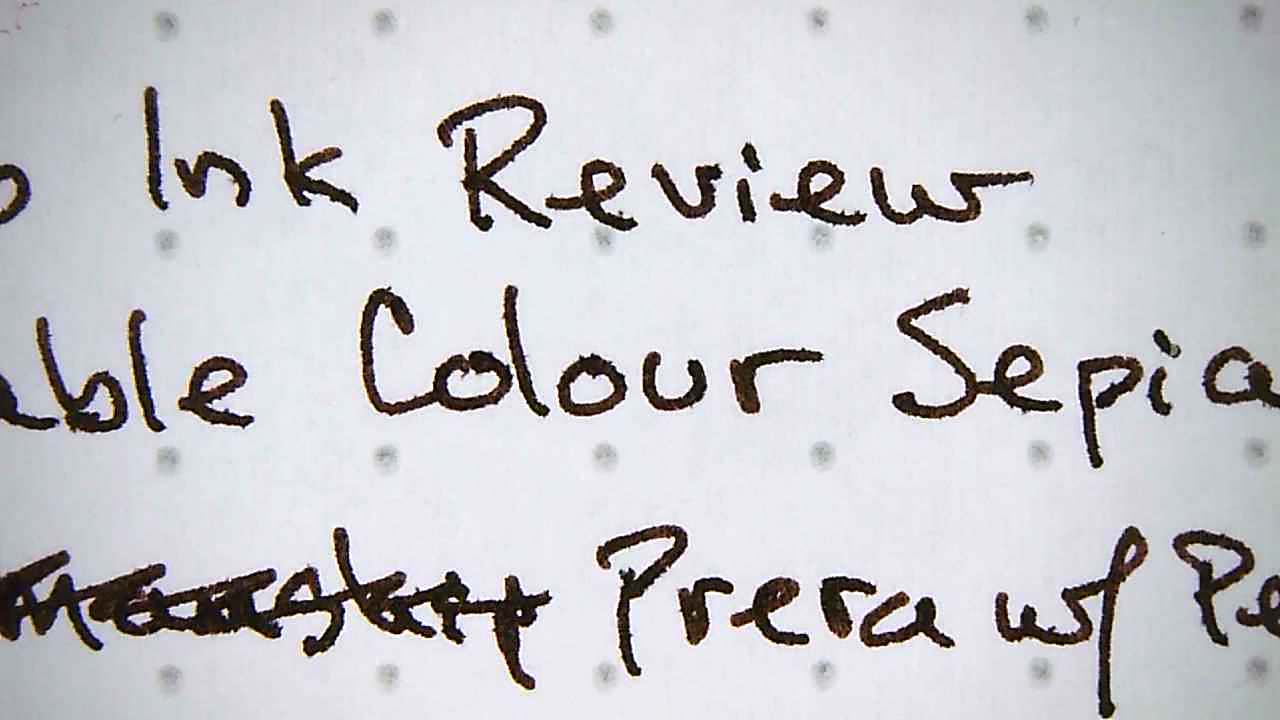 o Ink Review
able Colour Sepia
Prera w/ Pe